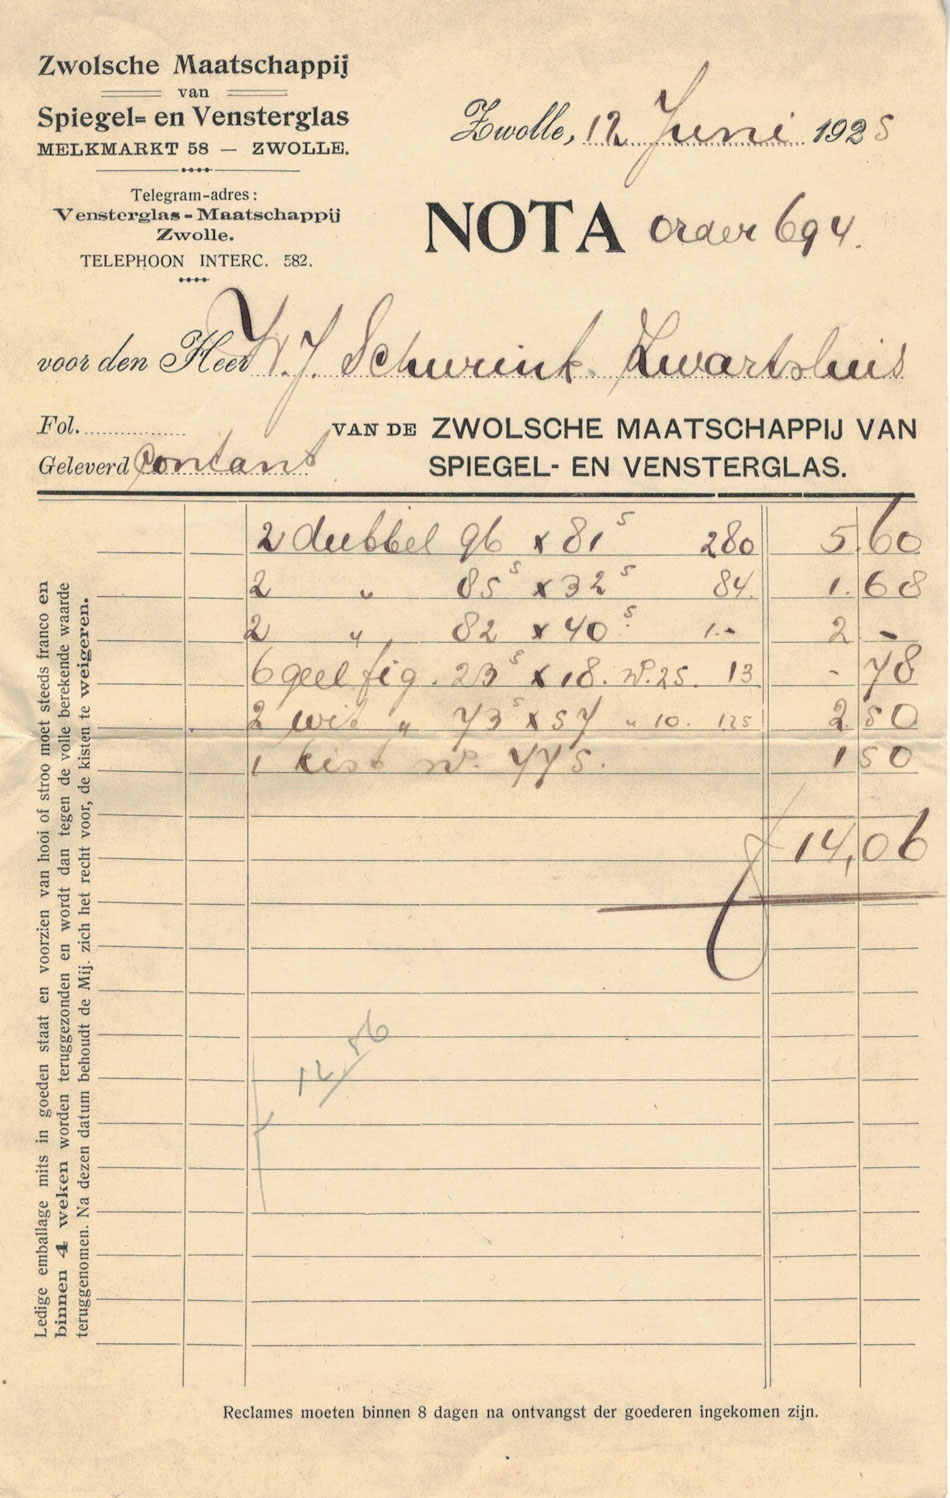 Zwolsche Maatschappij
van
Spiegel= en Vensterglas
MELKMARKT 58 — ZWOLLE.
Telegram-adres:
Vensterglas-Maatschappij
Zwolle.
TELEPHOON INTERC. 582.
Zwolle, 12 Juni 1925
NOTA order 694.
voor den Heer W. J. Schurink. Zwartsluis
Fol.
Geleverd Contant
VAN DE ZWOLSCHE MAATSCHAPPIJ VAN
SPIEGEL- EN VENSTERGLAS.
2 dubbel 96 x 81⁵ 280 5 60
2 „ 85⁵ x 32⁵ 84. 1. 68
2 „ 82 x 40⁵ 1.- 2 -
6 geel fig. 23⁵ x 18. No. 25. 13 - 78
2 wit „ 73⁵ x 57 „ 10. 125 2 50
1 kist No. 775. 1 50
f 14,06
12.56
Ledige emballage mits in goeden staat en voorzien van hooi of stroo moet steeds franco en
binnen 4 weken worden teruggezonden en wordt dan tegen de volle berekende waarde
teruggenomen. Na dezen datum behoudt de Mij. zich het recht voor, de kisten te weigeren.
Reclames moeten binnen 8 dagen na ontvangst der goederen ingekomen zijn.